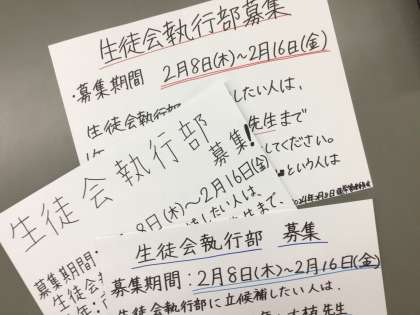 生徒会執行部募集
・募集期間 2月8日(木)~2月16日(金)
生徒会執行部 したい人は、
先生まで
してください。
という人は
生徒会執行部
募集!
募集期間: 2月8日(木)~2月16日(金)
生徒会 したい人は、
年 生まで、
生徒会執行部 募集
募集期間:2月8日(木)~2月16日(金)
生徒会執行部に立候補したい人は、
先生